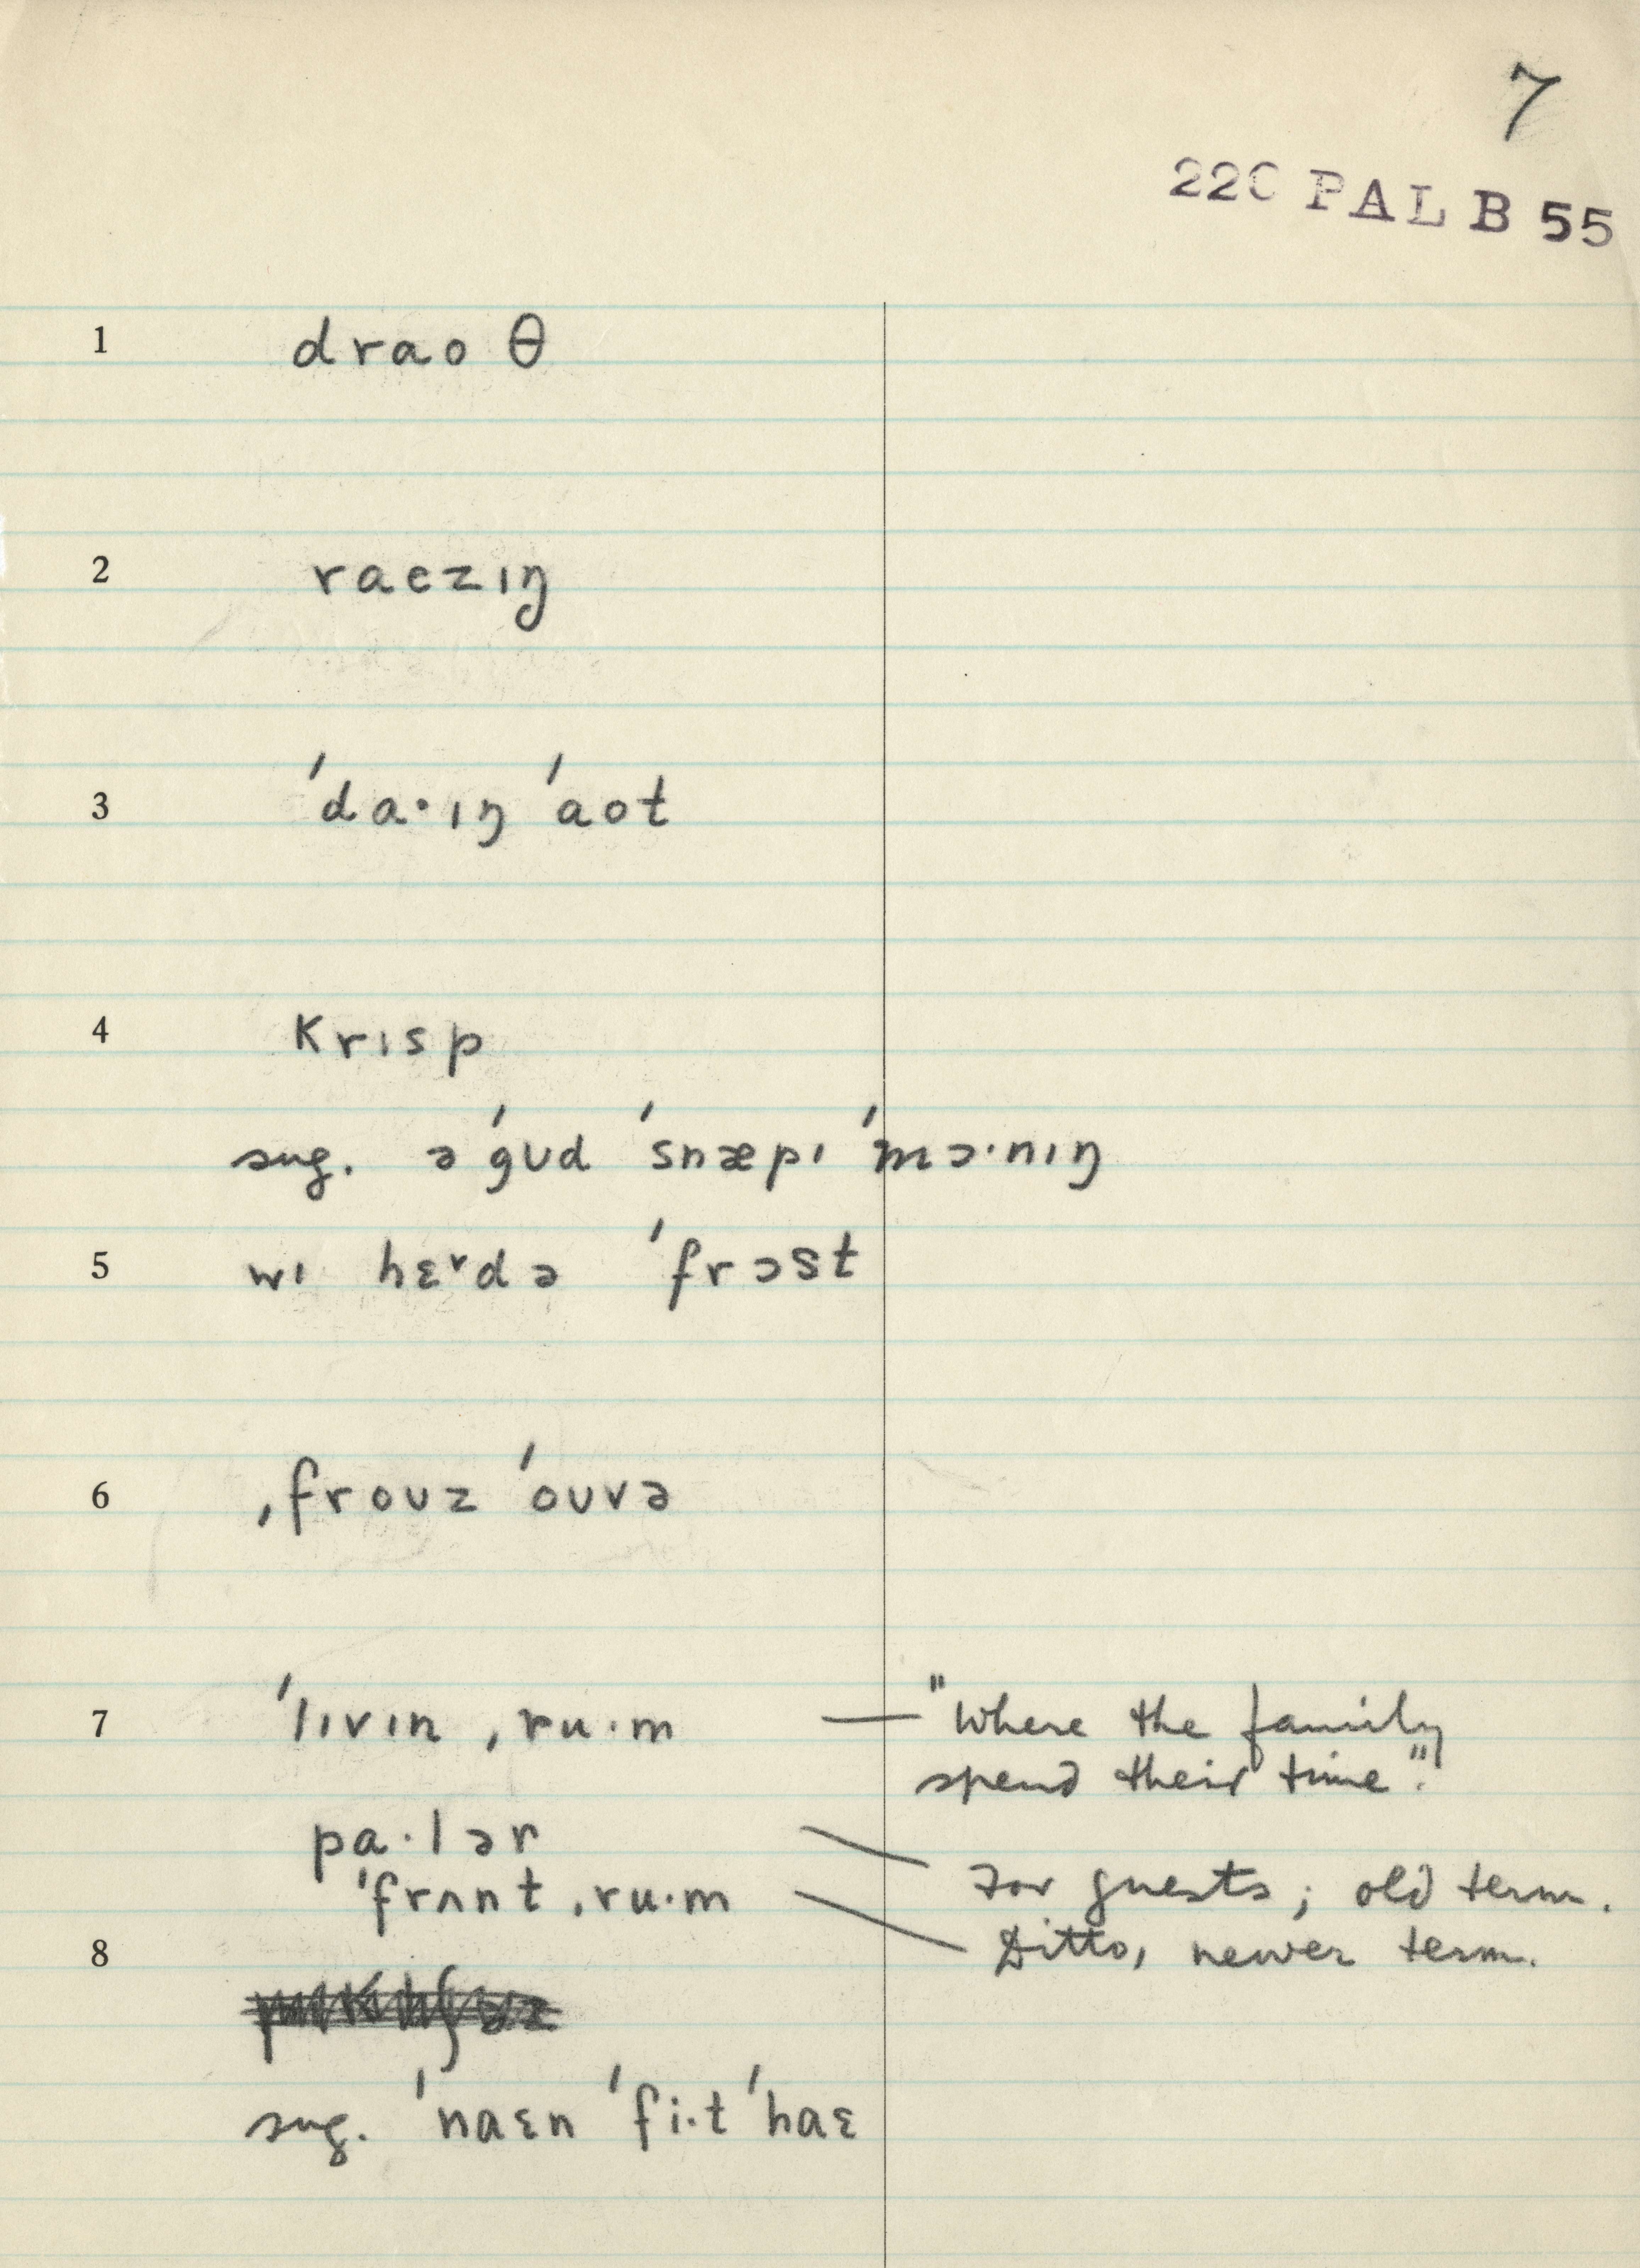 7
220 PAL B 55
1 draoθ
2 raezɪŋ
3 ˈda·ɪŋ ˈaot
4 krɪsp
sug. ə ˈgʊd ˈsnæpɪ ˈmɔ·nɪŋ
5 wɪ hɛʳd ə ˈfrɔst
6 ˌfroʊz ˈoʊvə
7 ˈlɪvɪn ˌru·m — "Where the family
spend their time".
pa·lər — For guests; old term.
ˈfrʌnt ˌru·m — Ditto, newer term.
8
sug. ˈnaɛn ˈfi·t ˈhaɛ